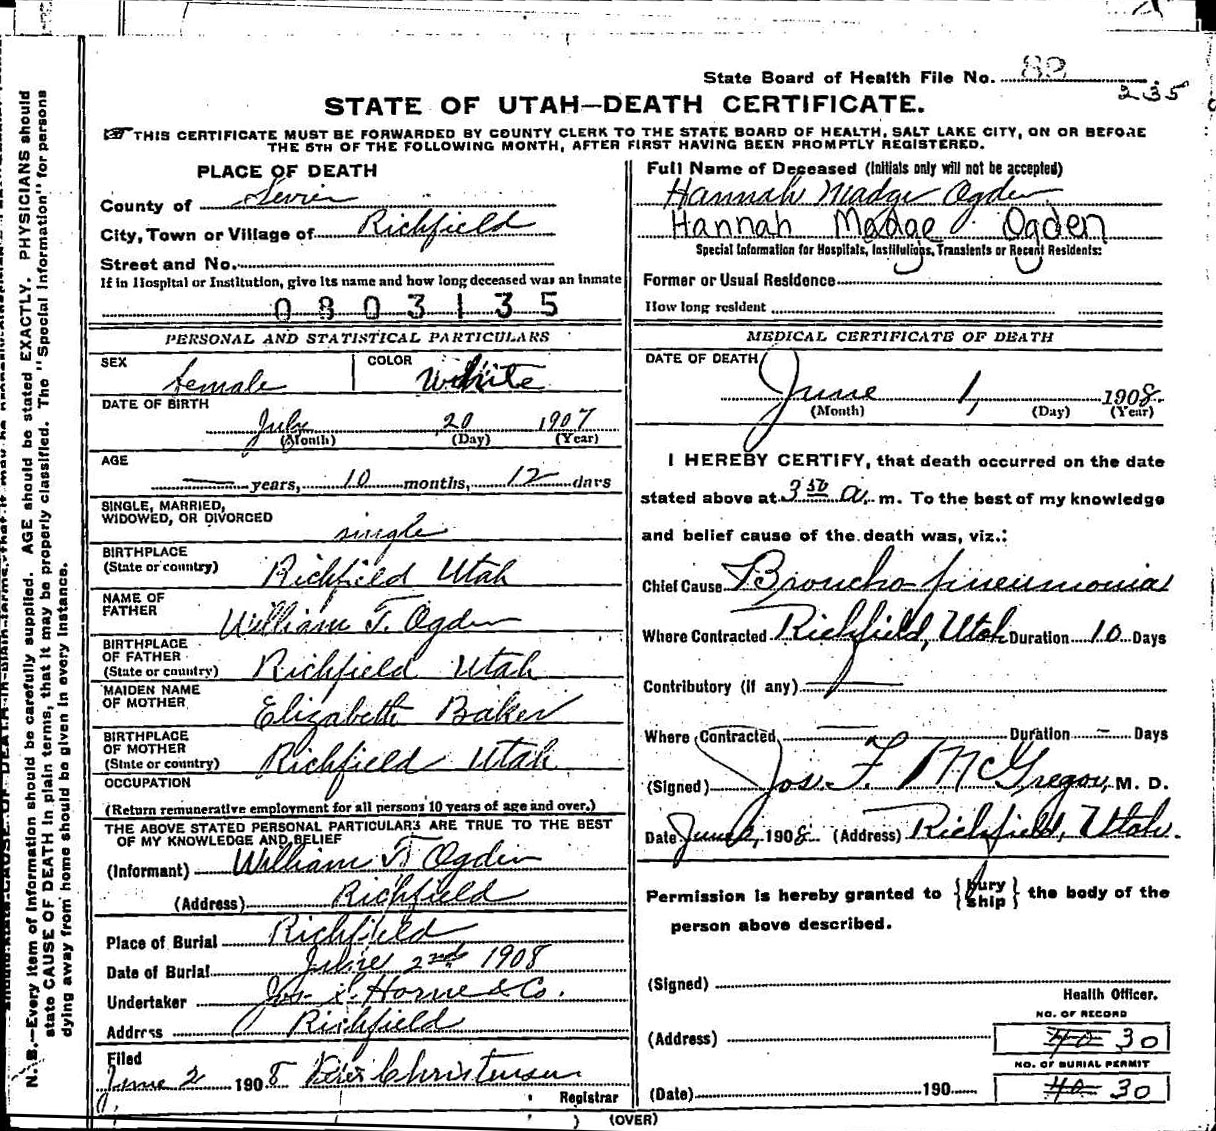 State Board of Health File No. 82
235
STATE OF UTAH—DEATH CERTIFICATE.
THIS CERTIFICATE MUST BE FORWARDED BY COUNTY CLERK TO THE STATE BOARD OF HEALTH, SALT LAKE CITY, ON OR BEFORE
THE 5TH OF THE FOLLOWING MONTH, AFTER FIRST HAVING BEEN PROMPTLY REGISTERED.
PLACE OF DEATH
County of Sevier
City, Town or Village of Richfield
Street and No.
If in Hospital or Institution, give its name and how long deceased was an inmate
0803135
PERSONAL AND STATISTICAL PARTICULARS
SEX female COLOR White
DATE OF BIRTH
July 20 1907
(Month) (Day) (Year)
AGE
— years, 10 months, 12 days
SINGLE, MARRIED,
WIDOWED, OR DIVORCED
single
BIRTHPLACE
(State or country) Richfield Utah
NAME OF
FATHER William T. Ogden
BIRTHPLACE
OF FATHER
(State or country) Richfield Utah
MAIDEN NAME
OF MOTHER Elizabeth Baker
BIRTHPLACE
OF MOTHER
(State or country) Richfield Utah
OCCUPATION
(Return remunerative employment for all persons 10 years of age and over.)
THE ABOVE STATED PERSONAL PARTICULARS ARE TRUE TO THE BEST
OF MY KNOWLEDGE AND BELIEF
(Informant) William T. Ogden
(Address) Richfield
Place of Burial Richfield
Date of Burial June 2nd 1908
Undertaker Jos. S. Horne & Co.
Address Richfield
Filed
June 2 1908 Christensen
Registrar
Full Name of Deceased (Initials only will not be accepted)
Hannah Madge Ogden
Hannah Madge Ogden
Special Information for Hospitals, Institutions, Transients or Recent Residents:
Former or Usual Residence
How long resident
MEDICAL CERTIFICATE OF DEATH
DATE OF DEATH
June 1, 1908
(Month) (Day) (Year)
I HEREBY CERTIFY, that death occurred on the date
stated above at 3 50 a. m. To the best of my knowledge
and belief cause of the death was, viz.:
Chief Cause Broncho pneumonia
Where Contracted Richfield, Utah Duration 10 Days
Contributory (if any) —
Where Contracted — Duration — Days
(Signed) Jos. F. McGregor, M. D.
Date June 2, 1908 (Address) Richfield, Utah.
Permission is hereby granted to {bury ship} the body of the
person above described.
(Signed)
Health Officer.
NO. OF RECORD
(Address) 40 30
NO. OF BURIAL PERMIT
(Date) 190 40 30
(OVER)
N. B.—Every item of information should be carefully supplied. AGE should be stated EXACTLY. PHYSICIANS should
state CAUSE OF DEATH in plain terms, that it may be properly classified. The "Special Information" for persons
dying away from home should be given in every instance.